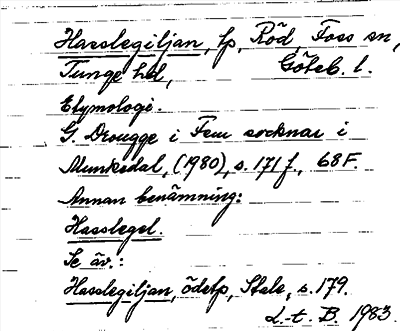 Hasslegiljan, tp, Röd, Foss sn,
Tunge hd, Göteb. l.
Etymologi.
G. Drougge i Fem socknar i
Munkedal, (1980), s. 171 f., 68 F.
Annan benämning:
Hasslegel.
Se äv.:
Hasslegiljan, ödetp, Stale, s. 179.
L-t. B. 1983.